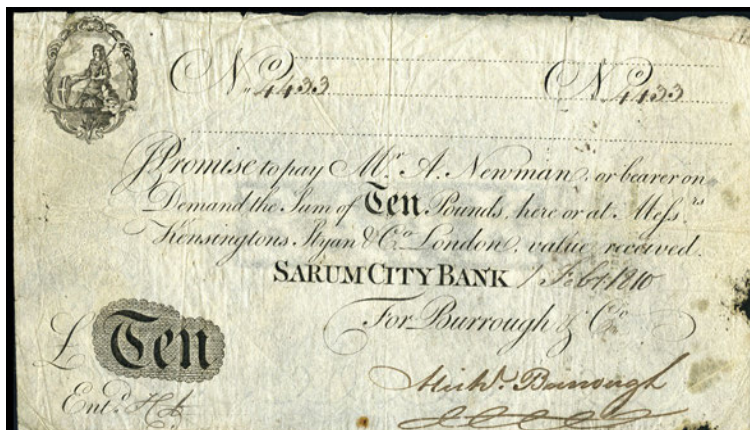 No 4433 No 4433
I Promise to pay Mr. A. Newman, or bearer on
Demand the Sum of Ten Pounds, here or at Messrs
Kensingtons Styan & Co. London, value received.
SARUM CITY BANK 1 Feby 1810
For Burrough & Co
£ Ten
Michl. Burrough
Entd.